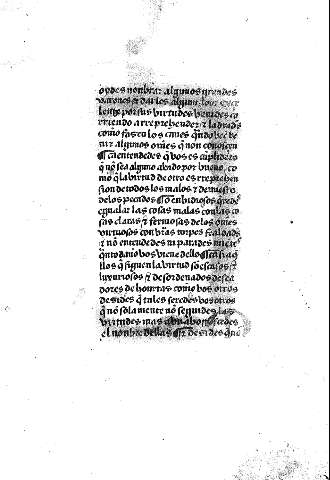 oydes nonbrar algunos grandes
varones & dar los algunos loor exce
lente por sus virtudes venides co
rriendo a rreprehender & ladrades
como fasen los canes q̃ndo vee ve
nir algunos om̃es q̃ non conoscen
¶ Ca entendedes q̃ vos es cunplidero
q̃ nõ sea alguno auido por bueno, co
mo q̃ la virtud de otro es rreprehen
sion de todos los malos & demuestra
de los pecados ¶ O enbidiosos q̃redes
egualar las cosas malas con las co
sas claras & fermosas de los om̃es
virtuosos con vr̃as torpes fealdades
& nõ entendedes nj parades mjentes
q̃nto daño vos viene dello ¶ Ca si aq̃
llos q̃ siguen la virtud sõ escasos &
luxuriosos & desordenados desea
dores de honrras como vos otros
desides q̃ tales seredes vos otros
q̃ nõ sola mente nõ seguides las
virtudes mas aborresçedes
el nonbre dellas ¶ E desides que